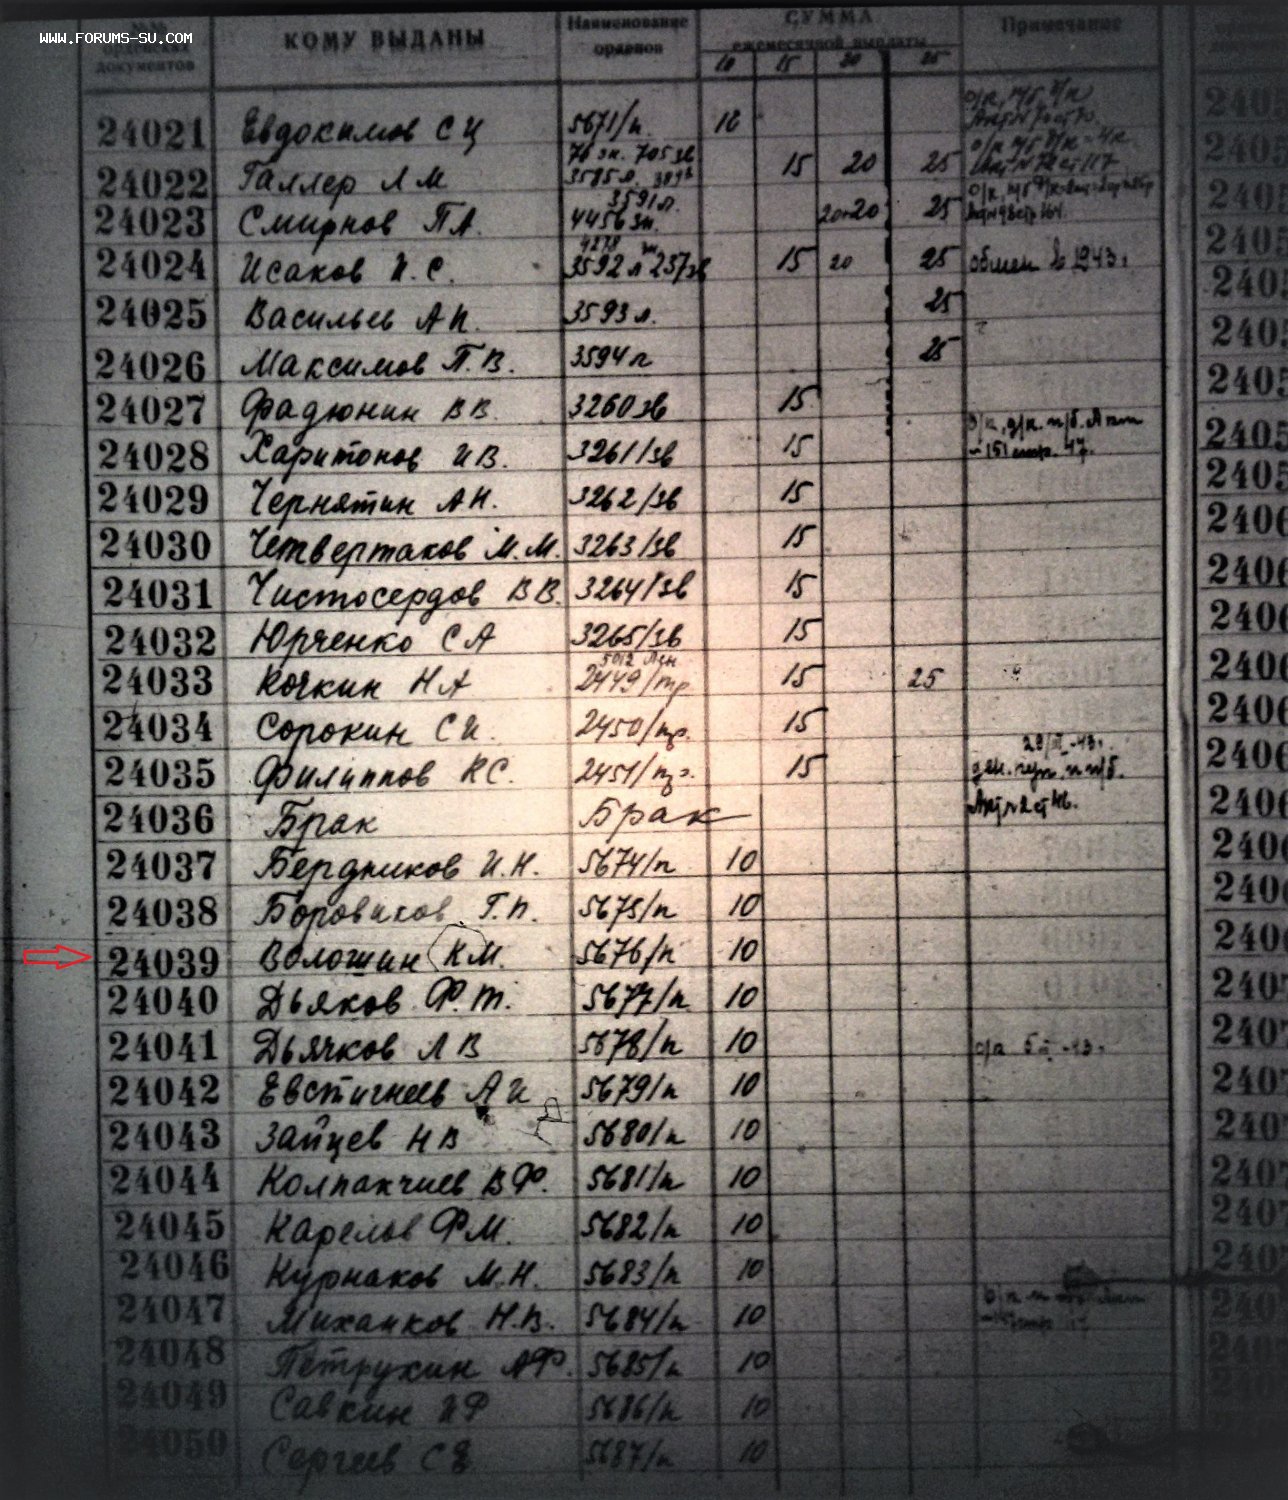 WWW.FORUMS-SU.COM
документов КОМУ ВЫДАНЫ Наименование орденов СУММА ежемесячной выплаты Примечание
10 15 20 25
24021 Евдокимов С И 5671/п 10
24022 Галлер Л М 15 20 25
3591л.
24023 Смирнов П А. 4456 зн. 20 25
24024 Исаков И. С. 3592 л 257зв 15 20 25 обмен 1943г
24025 Васильев А П. 3593 л. 25
24026 Максимов П. В. 3594 л 25
24027 Фадюнин В В. 3260 зв 15
24028 Харитонов И В. 3261/зв 15
24029 Чернятин А Н. 3262/зв 15
24030 Четвертаков М. М. 3263/зв 15
24031 Чистосердов В В. 3264/зв 15
24032 Юрченко С А 3265/зв 15
5012 Лен
24033 Кочкин Н А 2449/тр 15 25
24034 Сорокин С И. 2450/ 15
24035 Филиппов К С. 2451/ 15
24036 Брак Брак
24037 Бердников И. Н. 5674/п 10
24038 Боровиков Г. П. 5675/п 10
24039 Волошин К М. 5676/п 10
24040 Дьяков Ф. Т. 5677/п 10
24041 Дьячков Л В 5678/п 10
24042 Евстигнеев А И 5679/п 10
24043 Зайцев Н В 5680/п 10
24044 Колпакчиев В Ф. 5681/п 10
24045 Карелов Ф М. 5682/п 10
24046 Курнаков М. Н. 5683/п 10
24047 Миханков Н. В. 5684/п 10
24048 Петрукин А Ф. 5685/п 10
24049 Савкин И Ф 5686/п 10
24050 Сергеев С Е 5687/п 10